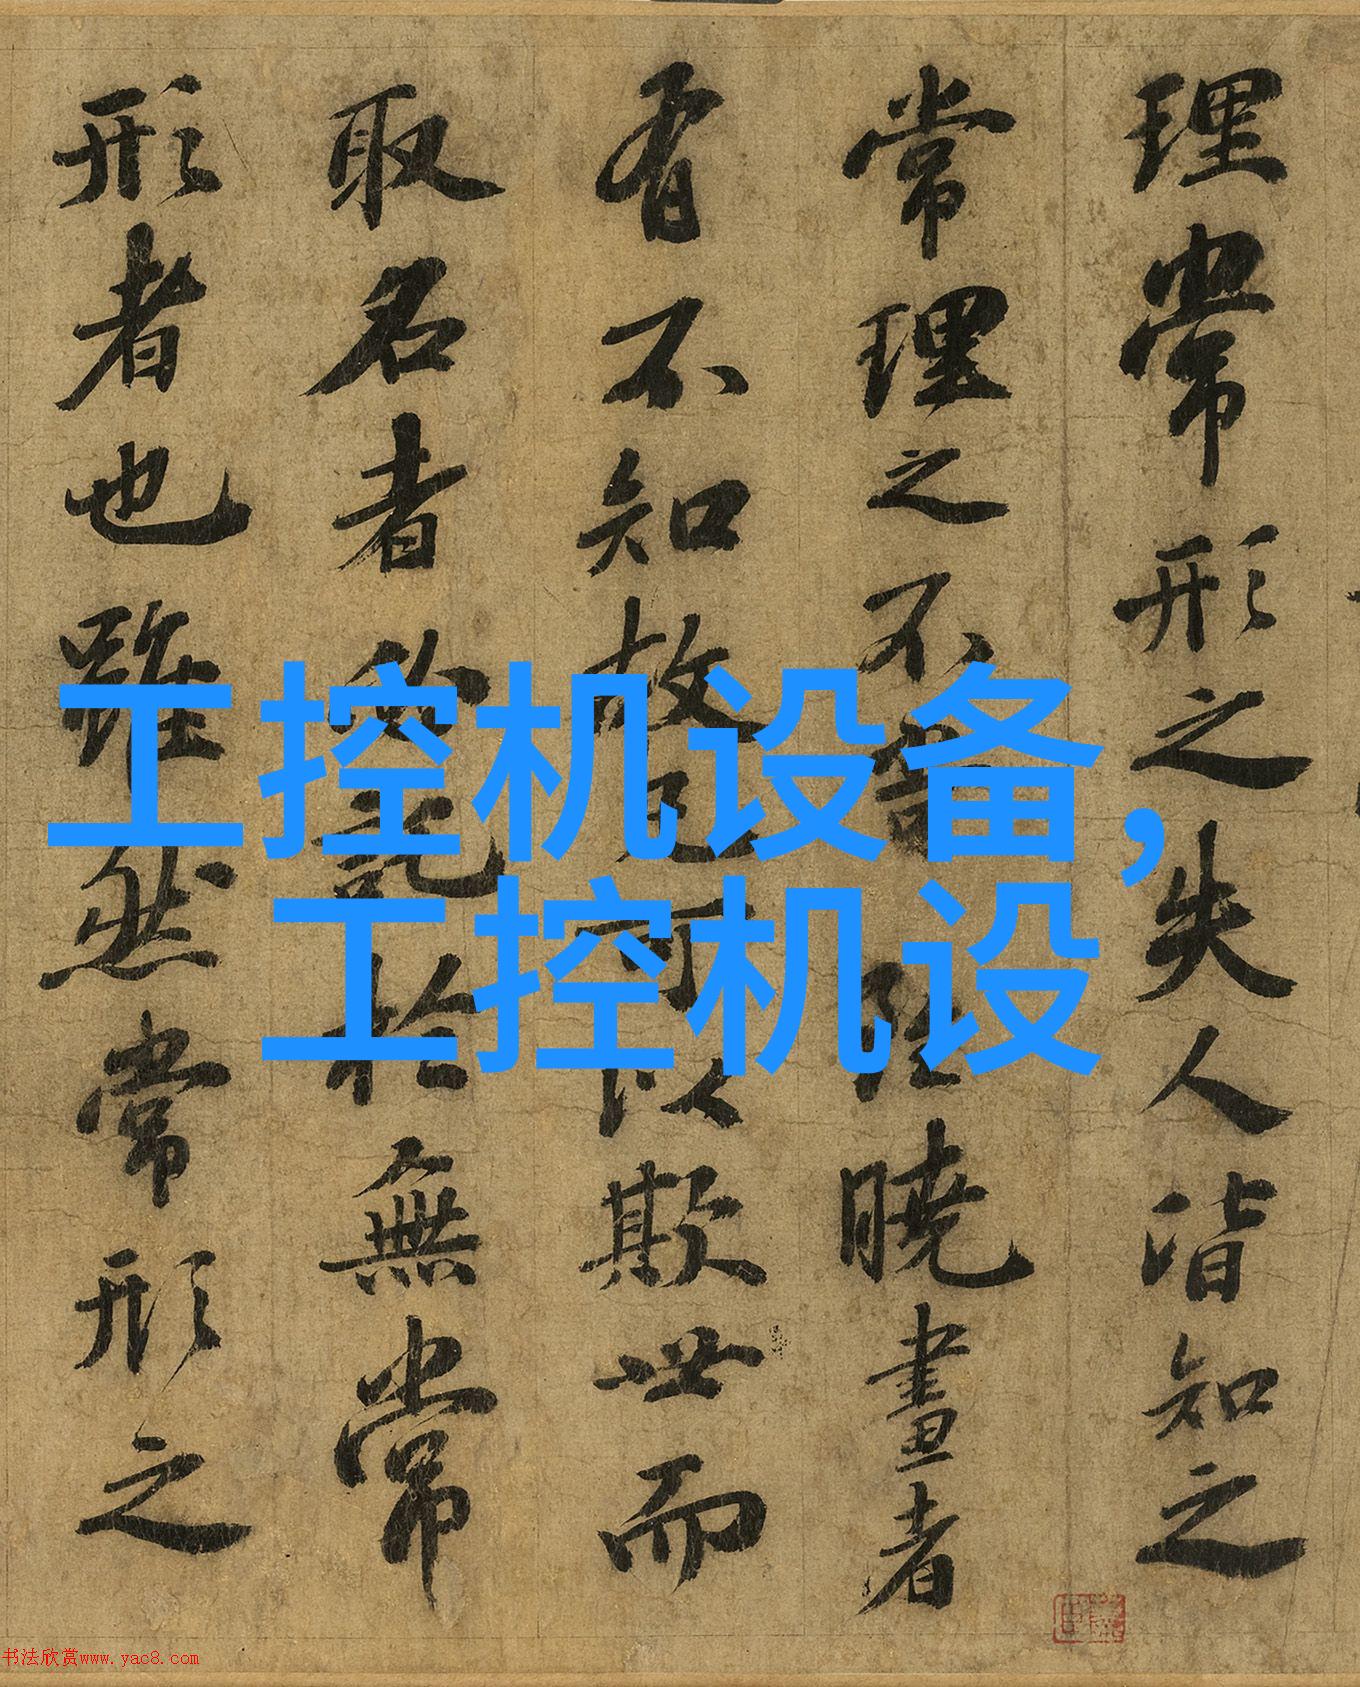 理常形之失人皆知之
常理之不當雖曉畫者
有不知故凡可以欺世而
取名者必託於無常
形者也雖然常形之
工控机设备，
工控机设
书法欣赏www.yac8.com